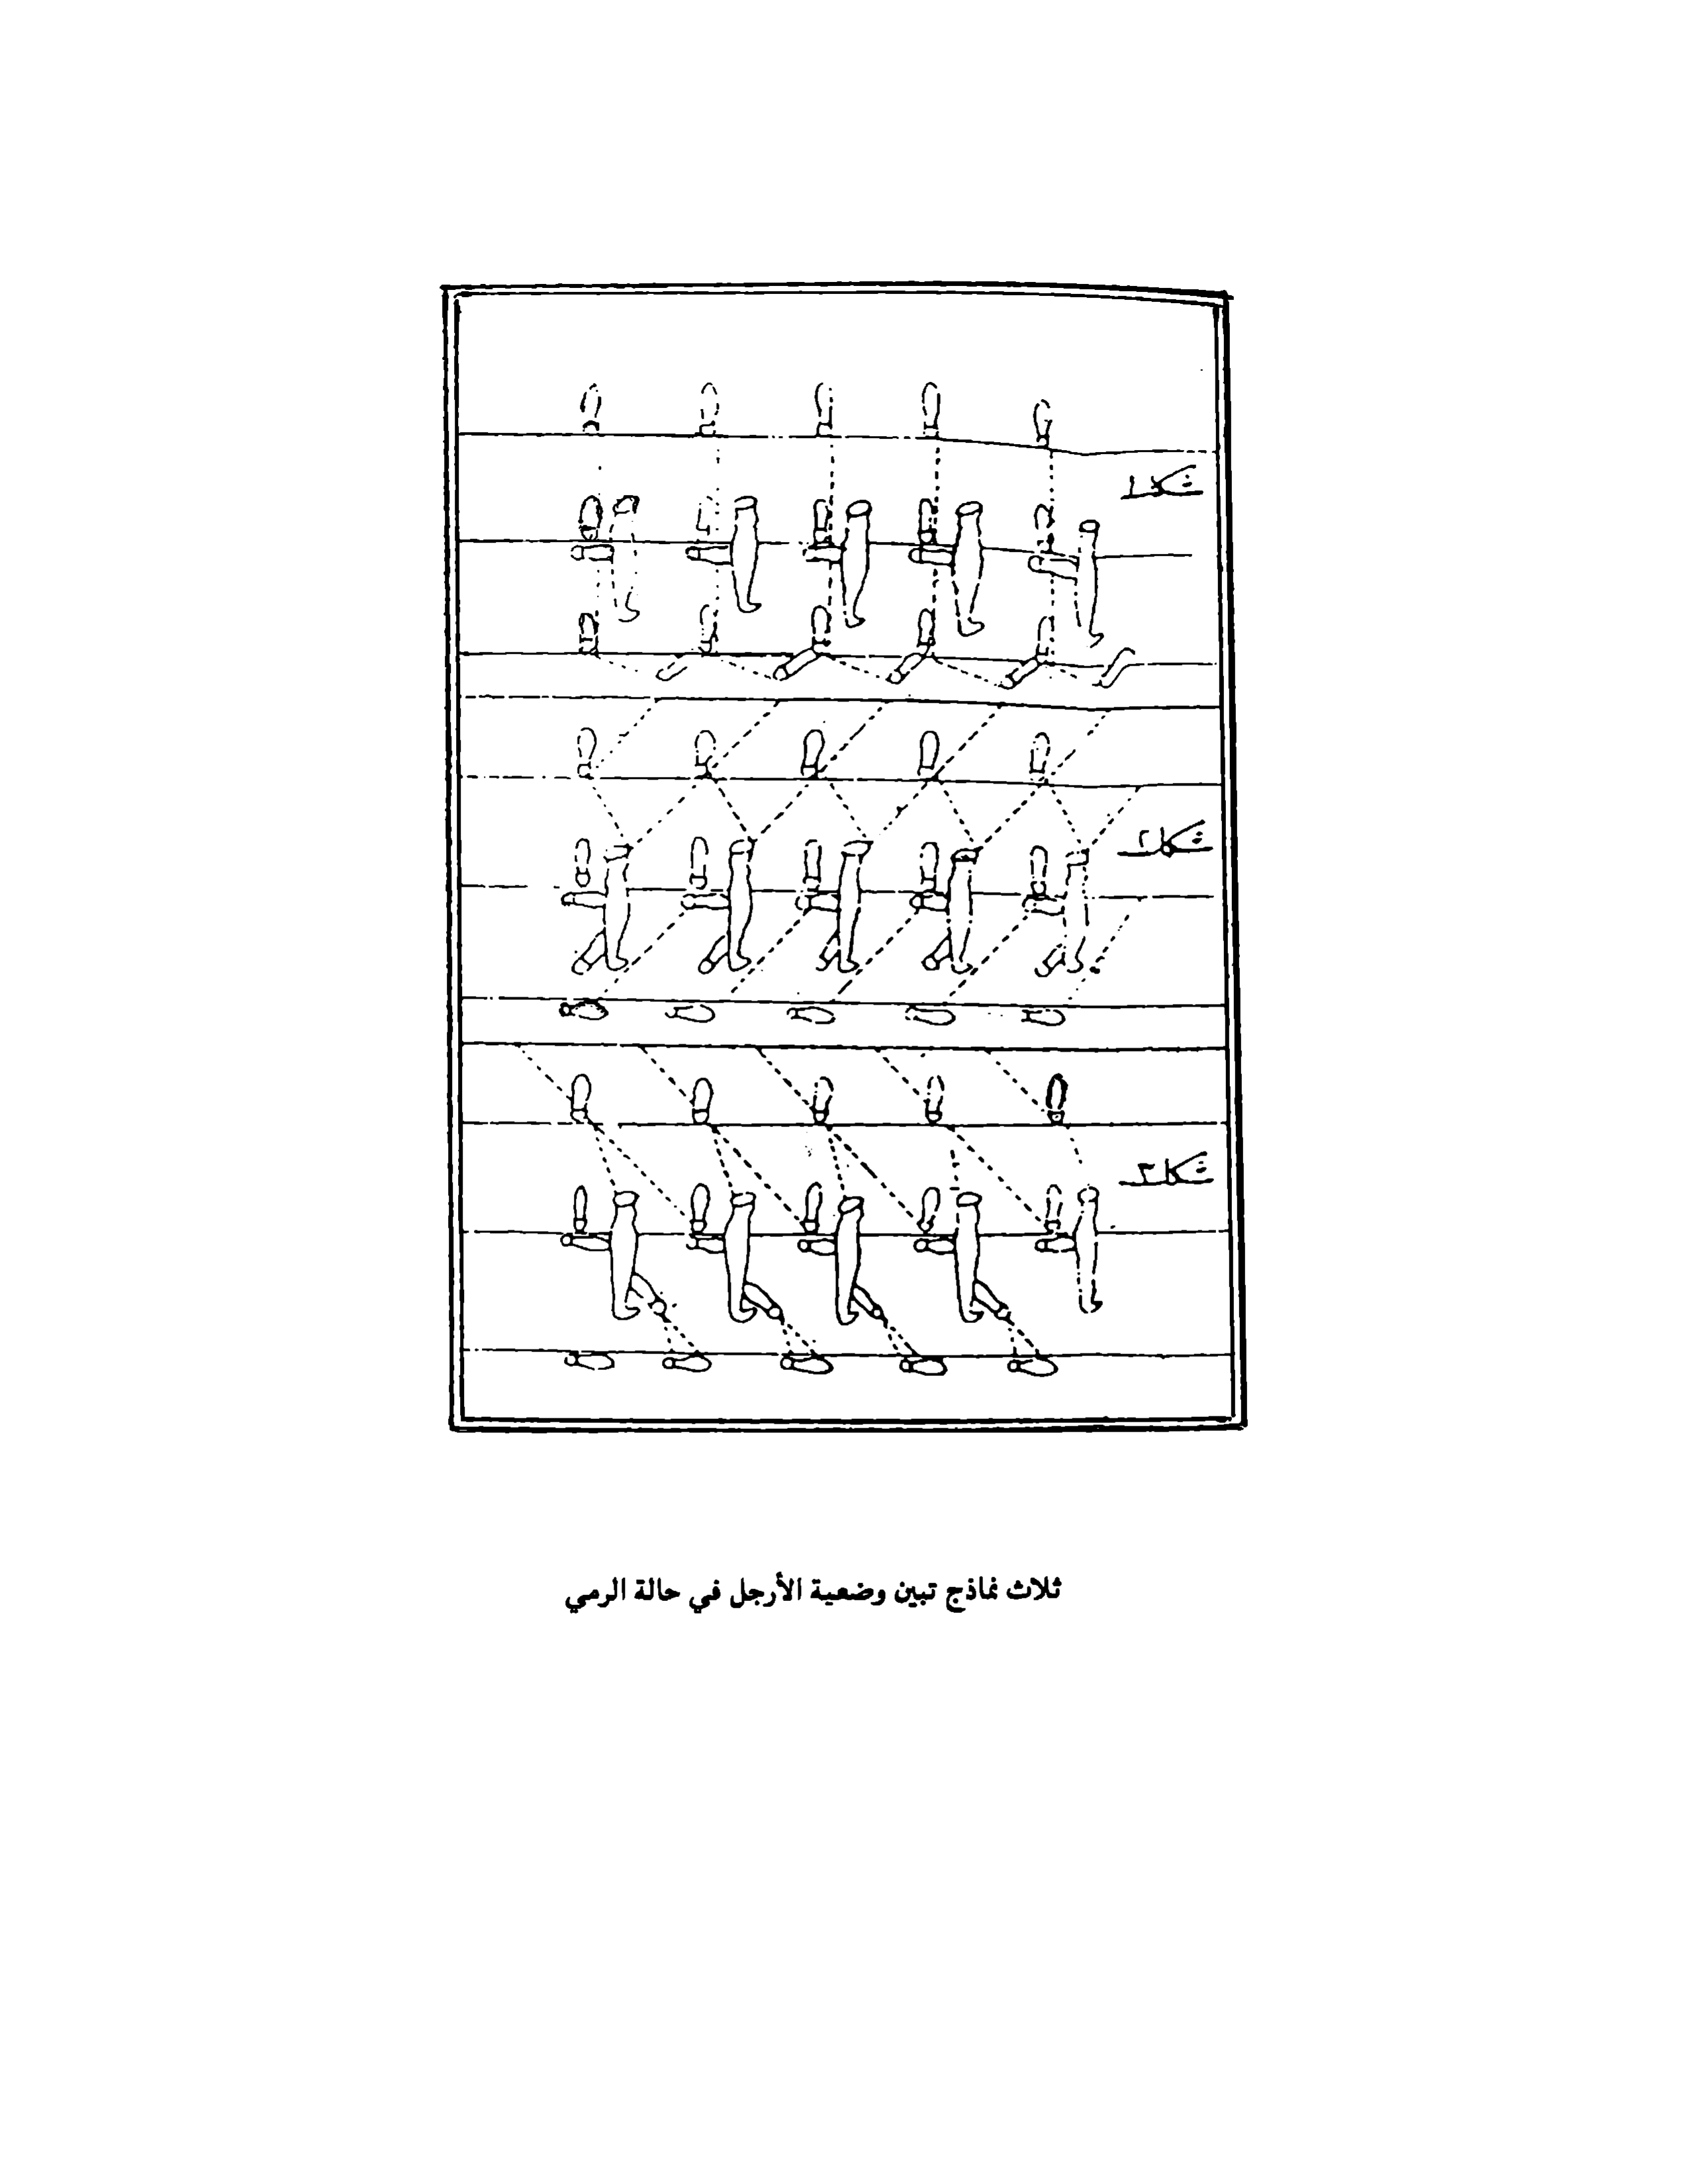 شكل ١
شكل ٢
شكل ٣
ثلاث نماذج تبين وضعية الأرجل في حالة الرمي